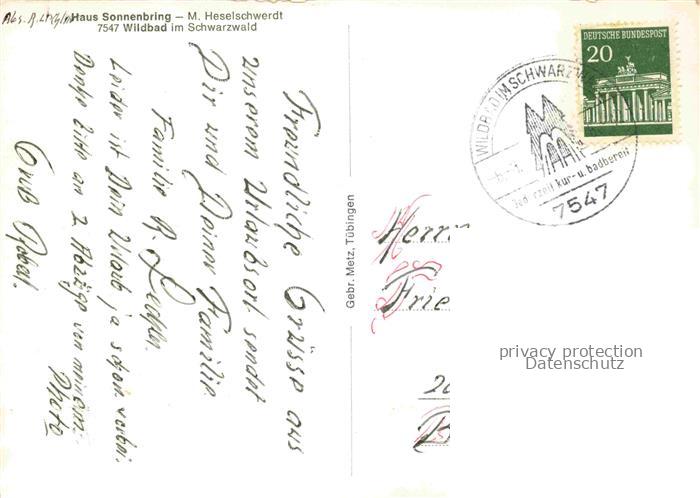 Haus Sonnenbring – M. Heselschwerdt
7547 Wildbad im Schwarzwald
Freundliche Grüsse aus
unserem Urlaubsort sendet
Dir und Deiner Familie
Familie R.
Leider ist Dein Urlaub ja schon vorbei.
Denke bitte an 2 Abzüge von meinem
Photo
Gruß
Gebr. Metz, Tübingen
DEUTSCHE BUNDESPOST
20
WILDBAD IM SCHWARZW
jederzeit kur- u. badbereit
7547
Herrn
Frie
privacy protection
Datenschutz